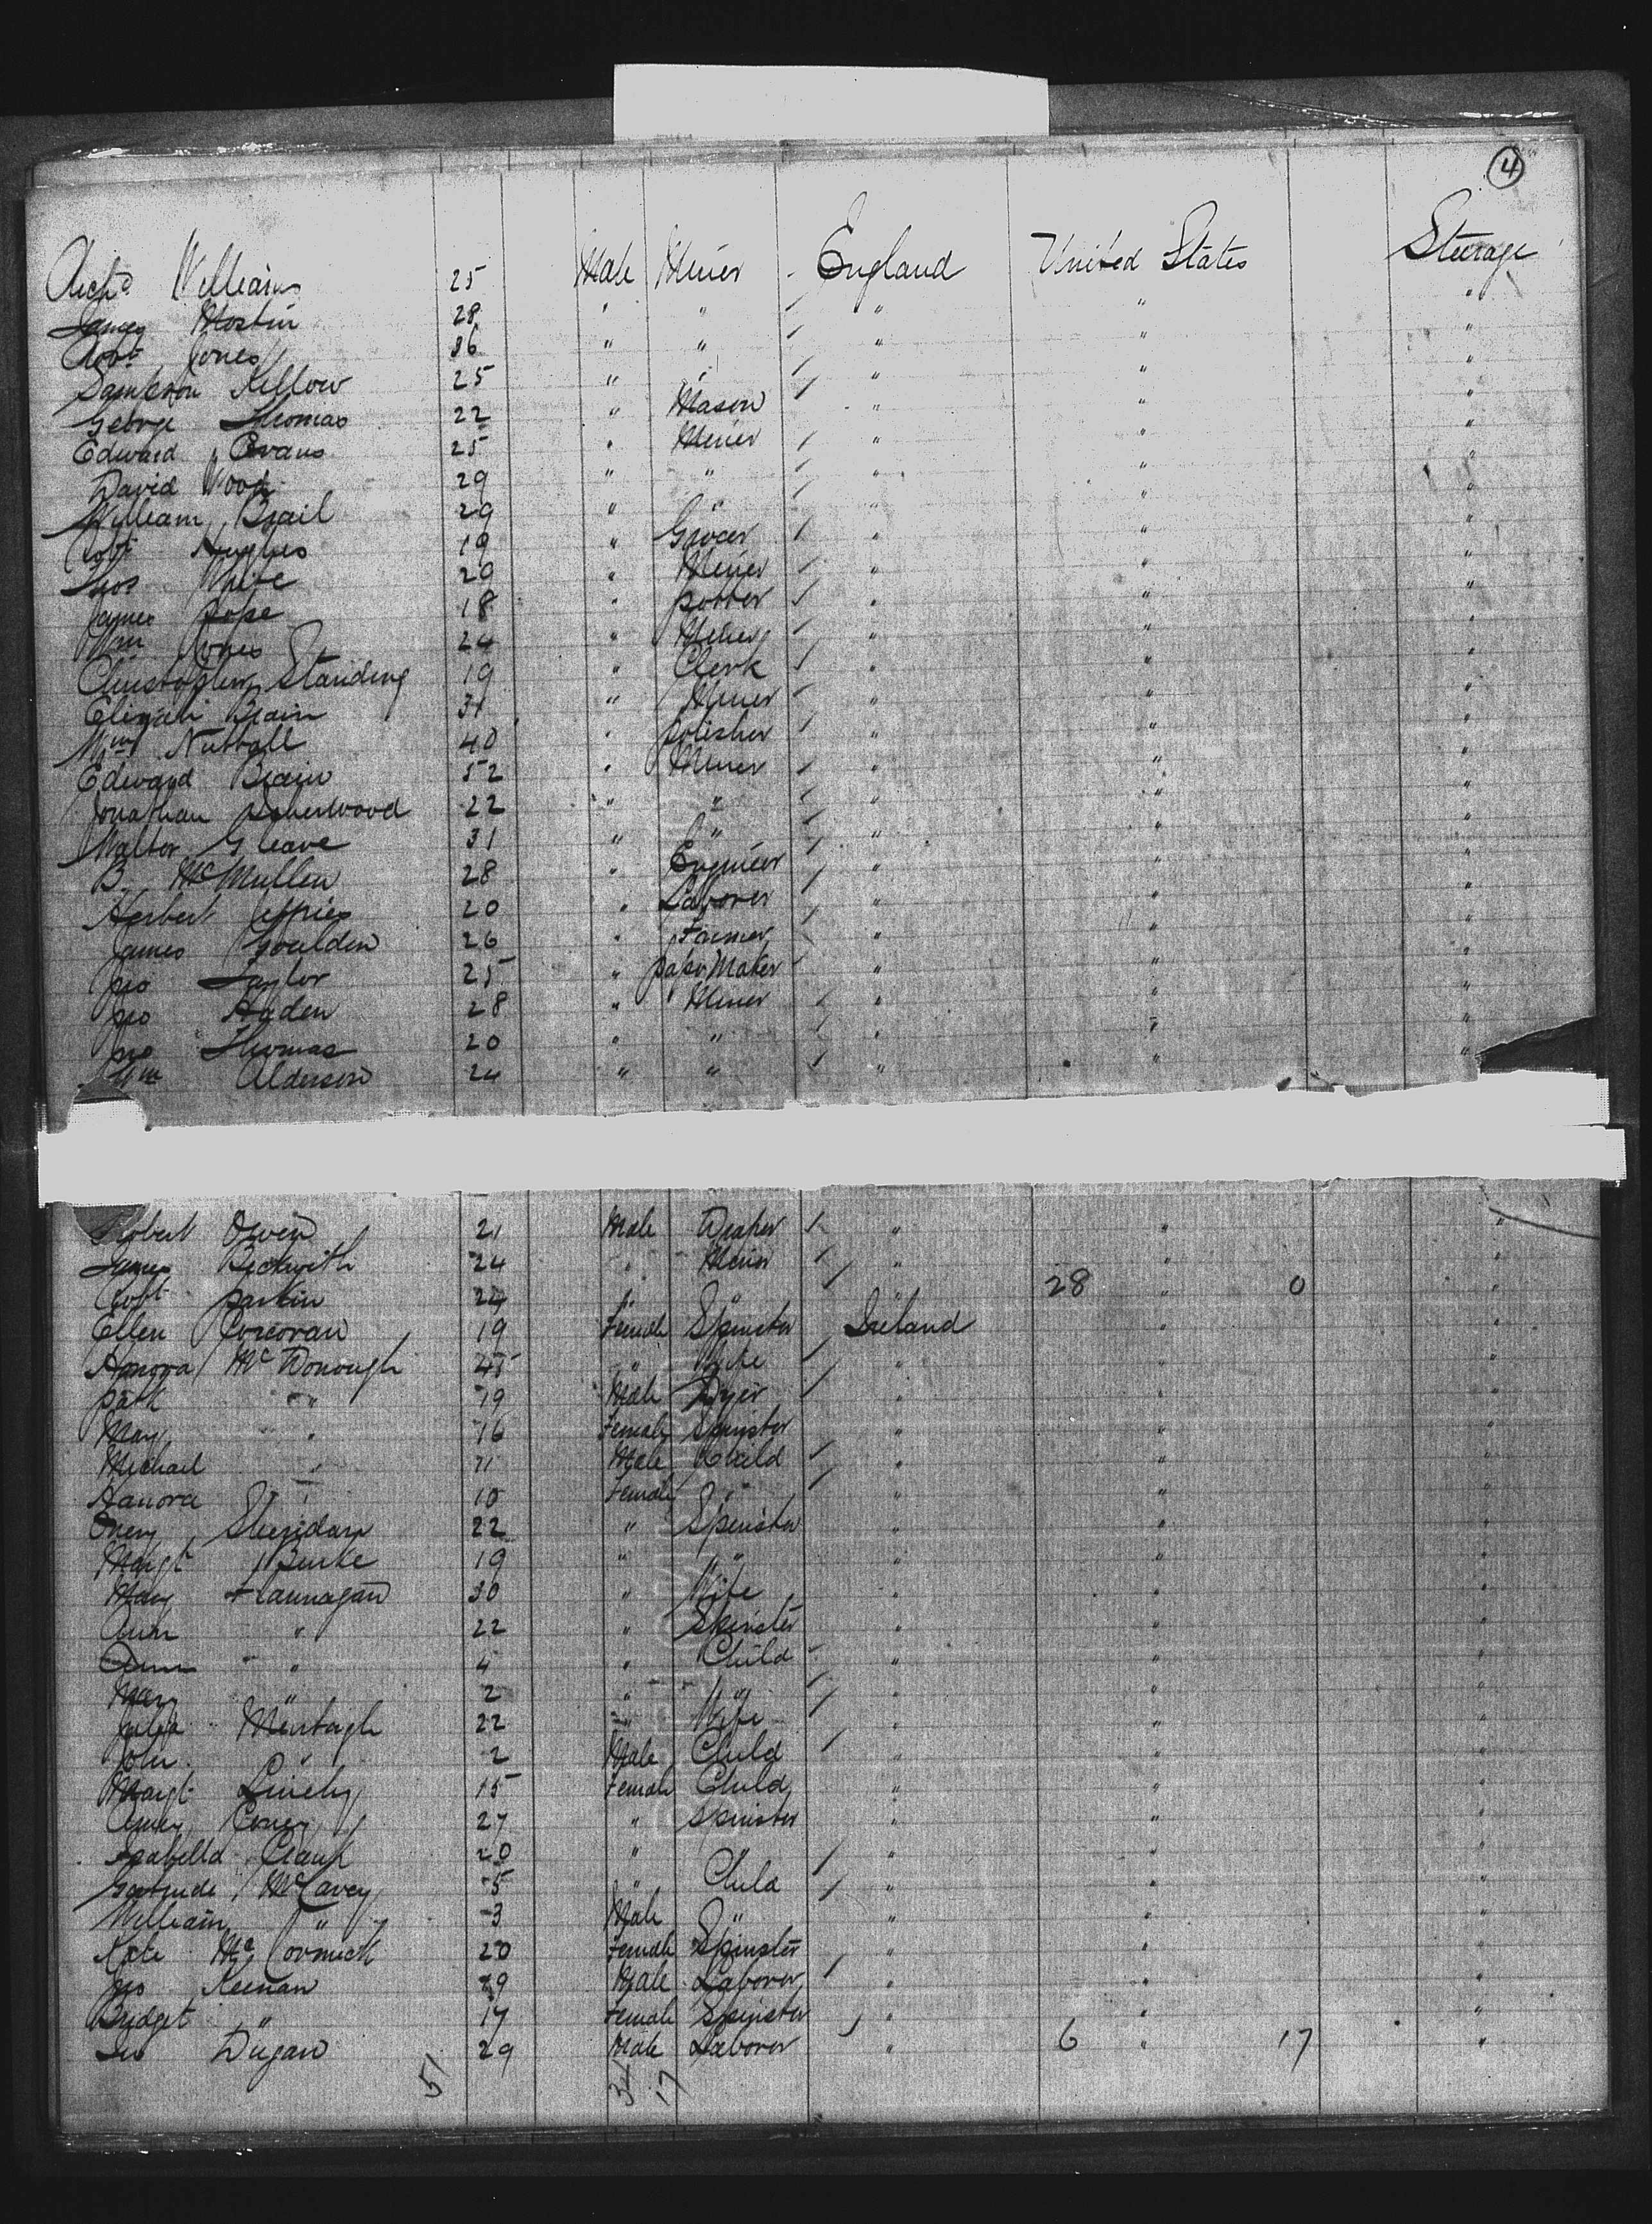 4
Archd Williams 25 Male Miner England United States Steerage
James Mostin 28 " " " " "
Robt Jones 36 " " " " "
Sampson Kellow 25 " " " " "
George Thomas 22 " Mason " " "
Edward Evans 25 " Miner " " "
David Wood 29 " " " " "
William Brail 29 " " " " "
Robt Hughes 19 " Grocer " " "
Thos White 29 " Miner " " "
James Pope 18 " potter " " "
Wm Jones 24 " Miner " " "
Christopher Standing 19 " Clerk " " "
Elijah Brain 31 " Miner " " "
Wm Nuttall 40 " polisher " " "
Edward Brain 52 " Miner " " "
Jonathan Isherwood 22 " " " " "
Walter Gleave 31 " " " " "
B. McMullen 28 " Engineer " " "
Herbert Jeffries 20 " Laborer " " "
James Goulden 26 " Farmer " " "
Jno Taylor 25 " papr Maker " " "
Jno Haden 28 " Miner " " "
Jno Thomas 20 " " " " "
Wm Alderson 24 " " " " "
Robert Owen 21 Male Draper " " "
James Beckwith 24 " Miner " " "
Robt Parkin 24 " " " 28 " 0 "
Ellen Corcoran 19 Female Spinster Ireland " "
Honora McDonough 45 " Wife " " "
Patk " 19 Male Dyer " " "
Mary " 16 Female Spinster " " "
Michael " 11 Male Child " " "
Hanora " 10 Female " " " "
Sheridan 22 " Spinster " " "
Margt Burke 19 " " " " "
Mary Flannagan 30 " Wife " " "
Ann " 22 " Spinster " " "
Ann " 4 " Child " " "
Mary " 2 " " " " "
Julia Murtagh 22 " Wife " " "
John " 2 Male Child " " "
Margt 15 Female Child " " "
27 " Spinster " " "
Isabella 20 " " " " "
Gertrude McCavey 5 " Child " " "
William " 3 Male " " " "
Kate McCormick 20 Female Spinster " " "
Jno Keenan 29 Male Laborer " " "
Bridget " 17 Female Spinster " " "
Dugan 29 Male Laborer " 6 " 17 "
51 34 17